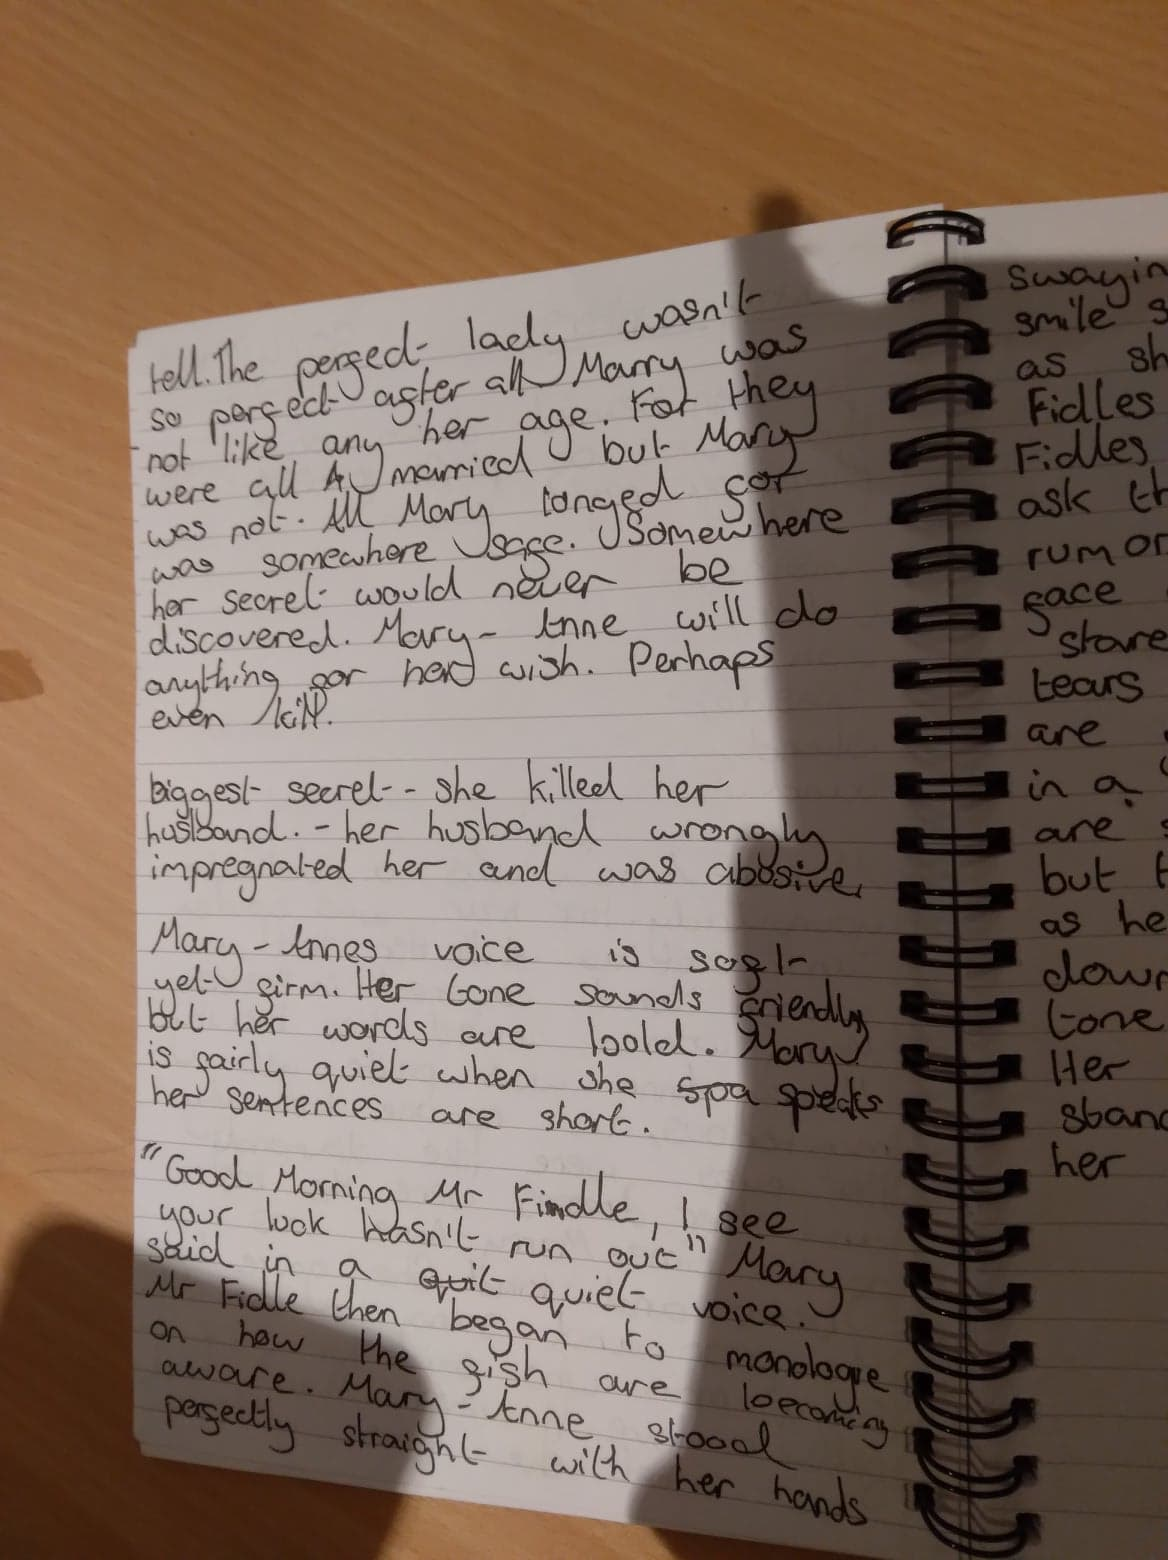 tell. The perfect lady wasn't
so perfect after all Marry was
not like any her age. For they
were all married but Mary
was not. All Mary longed for
was somewhere safe. Somewhere
her secret would never be
discovered. Mary-Anne will do
anything for her wish. Perhaps
even kill.
biggest secret - she killed her
husband. - her husband wrongly
impregnated her and was abbsive.
Mary-Annes voice is soft
yet firm. Her tone sounds friendly
but her words are bold. Mary
is fairly quiet when she spa speaks
her sentences are short.
"Good Morning Mr Findle, I see
your luck hasn't run out" Mary
said in a quit quiet voice.
Mr Fidle then began to monologue
on how the fish are becoming
aware. Mary-Anne stood
perfectly straight with her hands
swayin
smile s
as sh
Fidles
Fidles
ask th
rumor
face
stare
tears
are
in a
are
but t
as he
down
tone
Her
stand
her